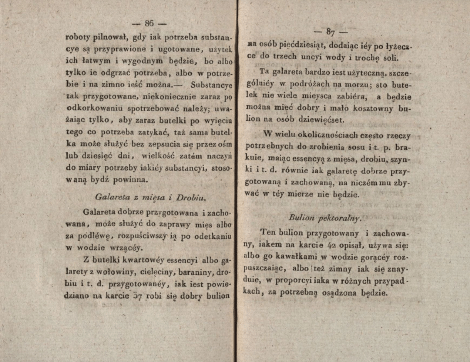 — 86 —
roboty pilnował, gdy iak potrzeba substan-
cye są przyprawione i ugotowane, użytek
ich łatwym i wygodnym będzie, bo albo
tylko ie odgrzać potrzeba, albo w potrze-
bie i na zimno ieść można.— Substancye
tak przygotowane, niekoniecznie zaraz po
odkorkowaniu spotrzebować należy; uwa-
żaiąc tylko, aby zaraz butelki po wyięciu
tego co potrzeba zatykać, taż sama butel-
ka może służyć bez zepsucia się przez ośm
lub dziesięć dni, wielkość zatém naczyń
do miary potrzeby iakiéy substancyi, stoso-
waną bydź powinna.
Galareta z mięsa i Drobiu.
Galareta dobrze przygotowana i zacho-
wana, może służyć do zaprawy mięs albo
za podléwę, rozpuściwszy ią po odetkaniu
w wodzie wrzącéy.
Z butelki kwartowéy essencyi albo ga-
larety z wołowiny, cielęciny, baraniny, dro-
biu i t. d. przygotowanéy, iak iest powie-
dziano na karcie 37 robi się dobry bulion
— 87 —
na osób pięćdziesiąt, dodaiąc iéy po łyżecz-
ce do trzech uncyi wody i trochę soli.
Ta galareta bardzo iest użyteczną, szcze-
gólniéy w podróżach na morzu; sto bute-
lek nie wiele mieysca zabiéra, a będzie
można mieć dobry i mało kosztowny bu-
lion na osób dziewięćset.
W wielu okolicznościach często rzeczy
potrzebnych do zrobienia sosu i t. p. bra-
kuie, maiąc essencyą z mięsa, drobiu, szyn-
ki i t. d. równie iak galaretę dobrze przy-
gotowaną i zachowaną, na niczém mu zby-
wać w téy mierze nie będzie.
Bulion pektoralny.
Ten bulion przygotowany i zachowa-
ny, iakem na karcie 40 opisał, używa się:
albo go kawałkami w wodzie gorącéy roz-
puszczaiąc, albo też zimny iak się znay-
duie, w proporcyi iaka w różnych przypad-
kach, za potrzebną osądzona będzie.